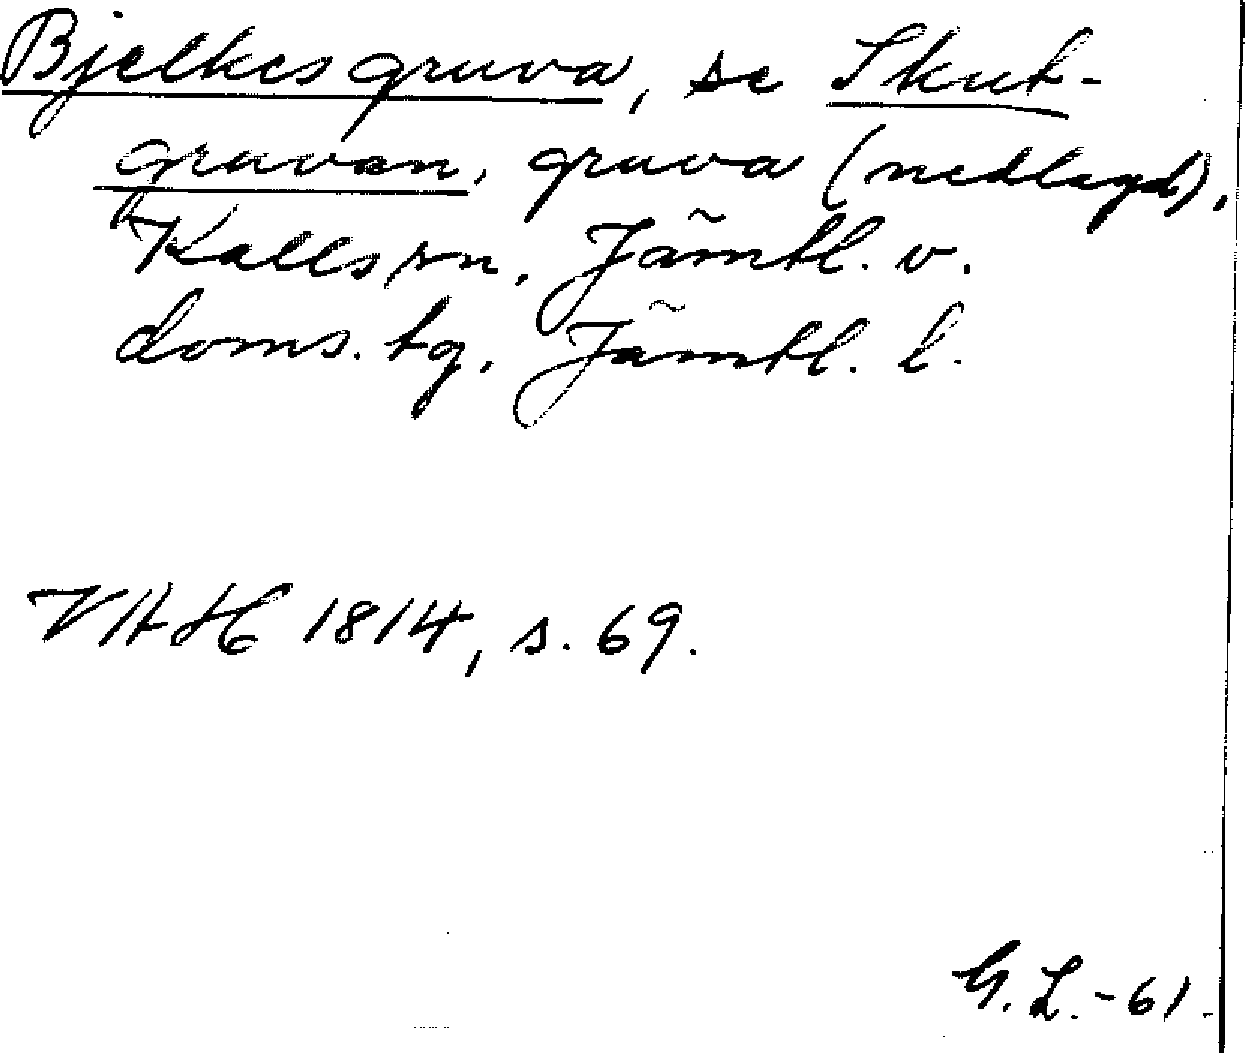 Bjelkesgruva, se Skut-
gruvan, gruva (nedlagd),
Kalls sn, Jämtl. v.
doms. tg, Jämtl. l.
VAH 1814, s. 69.
G. L. -61.